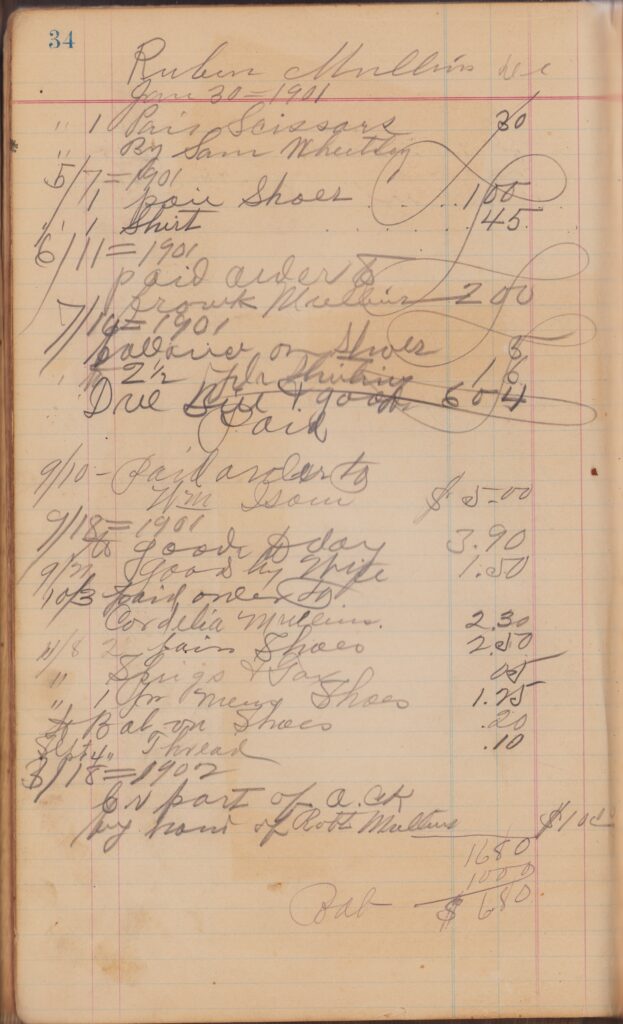 34
Ruben Mullins
Jan 30 = 1901
" 1 Pair Scissors 30
" By Sam
5/7 = 1901
" 1 pair Shoes 1 00
" 1 Shirt 45
6/11 = 1901
paid order to
Mullins 2 00
7/10 = 1901
balance on Shoes 5
" 2 1/2 yds Shirting 1 6
Due & goods 6 0 4
Paid
9/10 - Paid order to
Wm Isom $ 5.00
9/18 = 1901
to goods to day 3.90
goods by Wife 1.50
10/3 paid order to
Cordelia Mullins. 2.30
11/8 2 pairs Shoes 2.50
" Sprigs & 05
" 1 pr mens Shoes 1.25
Bal on Shoes .20
" Thread .10
3/18 = 1902
Cr part of a.ct
by hand of Robt Mullins $10
1680
1000
Bal $ 680